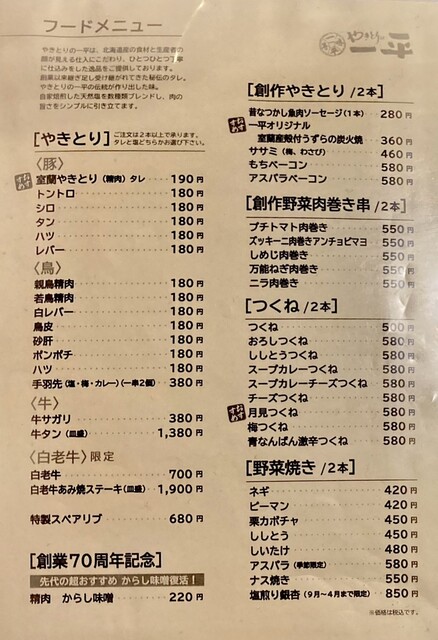 フードメニュー
やきとりの一平は、北海道産の食材と生産者の
顔が見える仕入にこだわり、ひとつひとつ丁寧
に仕込みをした逸品をご提供しております。
創業以来継ぎ足し受け継がれてきた秘伝のタレ。
やきとりの一平の伝統が作り出した味。
自家焙煎した天然塩を数種類ブレンドし、肉の
旨さをシンプルに引き立てます。
[やきとり] ご注文は2本以上で承ります。
タレと塩どちらかお選び下さい。
〈豚〉
おすすめ 室蘭やきとり(精肉)タレ 190円
トントロ 180円
シロ 180円
タン 180円
ハツ 180円
レバー 180円
〈鳥〉
親鳥精肉 180円
若鳥精肉 180円
白レバー 180円
鳥皮 180円
砂肝 180円
ボンボチ 180円
ハツ 180円
手羽先(塩・梅・カレー)(一串2個) 380円
〈牛〉
牛サガリ 380円
牛タン(皿盛) 1,380円
〈白老牛〉限定
白老牛 700円
白老牛あみ焼ステーキ(皿盛) 1,900円
特製スペアリブ 680円
[創業70周年記念]
先代の超おすすめ からし味噌復活!
精肉 からし味噌 220円
やきとりの一平
[創作やきとり/2本]
昔なつかし魚肉ソーセージ(1本) 280円
おすすめ 一平オリジナル
室蘭産殻付うずらの炭火焼 360円
ササミ(梅、わさび) 460円
もちベーコン 580円
アスパラベーコン 580円
[創作野菜肉巻き串/2本]
プチトマト肉巻き 550円
ズッキーニ肉巻きアンチョビマヨ 550円
しめじ肉巻き 550円
万能ねぎ肉巻き 550円
ニラ肉巻き 550円
[つくね/2本]
つくね 500円
おろしつくね 580円
ししとうつくね 580円
スープカレーつくね 580円
スープカレーチーズつくね 580円
チーズつくね 580円
おすすめ 月見つくね 580円
梅つくね 580円
青なんばん激辛つくね 580円
[野菜焼き/2本]
ネギ 420円
ピーマン 420円
栗カボチャ 450円
ししとう 450円
しいたけ 480円
アスパラ(季節限定) 580円
ナス焼き 550円
塩煎り銀杏(9月〜4月まで限定) 850円
※価格は税込です。